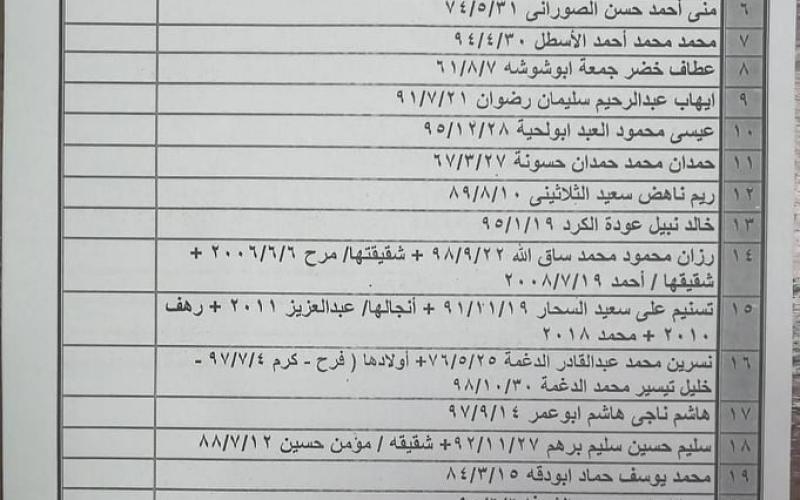 ٦ منى أحمد حسن الصورانى ٧٤/٥/٣١
٧ محمد محمد أحمد الأسطل ٩٤/٤/٣٠
٨ عطاف خضر جمعة ابوشوشه ٦١/٨/٧
٩ ايهاب عبدالرحيم سليمان رضوان ٩١/٧/٢١
١٠ عيسى محمود العبد ابولحية ٩٥/١٢/٢٨
١١ حمدان محمد حمدان حسونة ٦٧/٣/٢٧
١٢ ريم ناهض سعيد الثلاثينى ٨٩/٨/١٠
١٣ خالد نبيل عودة الكرد ٩٥/١/١٩
١٤ رزان محمود محمد ساق الله ٩٨/٩/٢٢ + شقيقتها/ مرح ٢٠٠٦/٦/٦ +
شقيقها / أحمد ٢٠٠٨/٧/١٩
١٥ تسنيم على سعيد السحار ٩١/١١/١٩ + أنجالها/ عبدالعزيز ٢٠١١ + رهف
٢٠١٠ + محمد ٢٠١٨
١٦ نسرين محمد عبدالقادر الدغمة ٧٦/٥/٢٥+ أولادها ( فرح - كرم ٩٧/٧/٤ -
خليل تيسير محمد الدغمة ٩٨/١٠/٣٠
١٧ هاشم ناجى هاشم ابوعمر ٩٧/٩/١٤
١٨ سليم حسين سليم برهم ٩٢/١١/٢٧+ شقيقه / مؤمن حسين ٨٨/٧/١٢
١٩ محمد يوسف حماد ابودقه ٨٤/٣/١٥